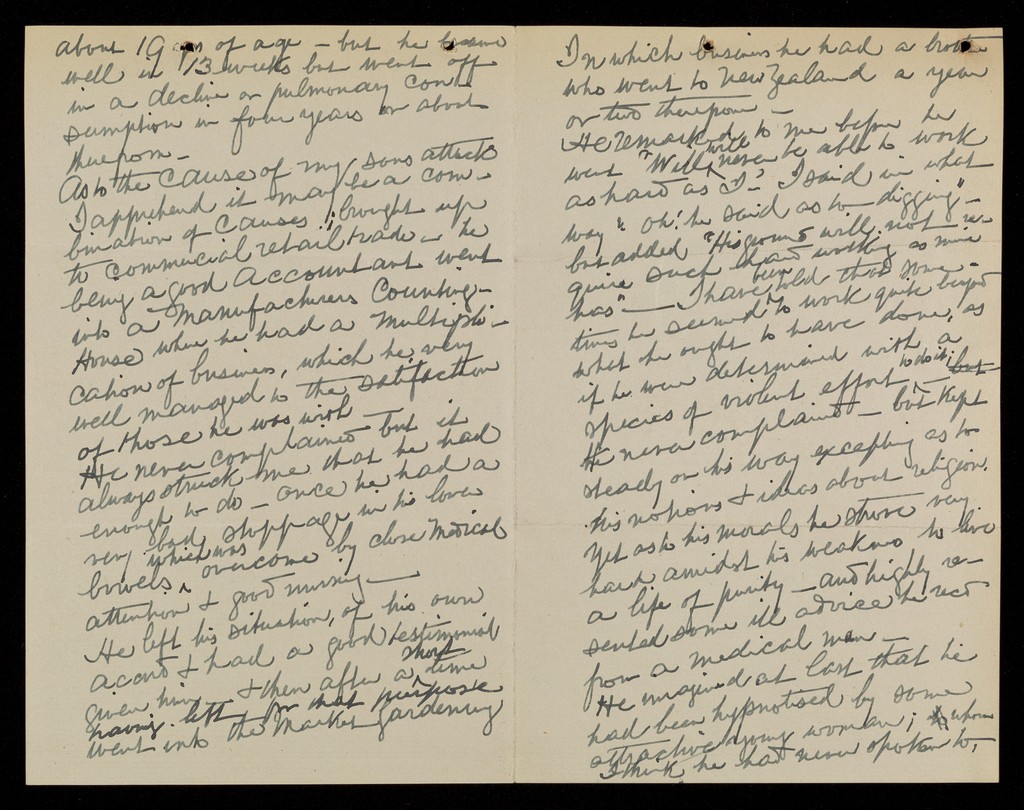 about 19 yrs of age - but he became
well in 13 weeks but went off
in a decline or pulmonary con-
sumption in four years or about
therefrom -
As to the cause of my sons attack
I apprehend it may be a com-
bination of causes; brought up
to commercial retail trade - he
being a good accountant went
into a Manufacturers Counting-
House where he had a multipli-
cation of business, which he very
well managed to the satisfaction
of those he was with -
He never complained but it
always struck me that he had
enough to do - once he had a
very bad stoppage in his lower
bowels, which was overcome by close Medical
attention & good nursing -
He left his situation, of his own
accord & had a good testimonial
given him & then after a short time
having left for that purpose
went into the Market gardening
In which business he had a brother
who went to New Zealand a year
or two therefrom -
He remarked to me before he
went "Will will never be able to work
as hard as I" I said in what
way "oh! he said as to digging" -
but added "His ground will not re-
quire such hard working as mine
has" - I have been told that some-
times he seemed to work quite beyond
what he ought to have done, as
if he were determined with a
species of violent effort to do it; - but
He never complained - but kept
steady on his way excepting as to
his notions & ideas about religion.
Yet as to his morals he strove very
hard amidst his weakness to live
a life of purity - and highly re-
sented some ill advice he recd
from a medical man -
He imagined at last that he
had been hypnotised by some
attractive young woman; to whom
I think he had never spoken to,